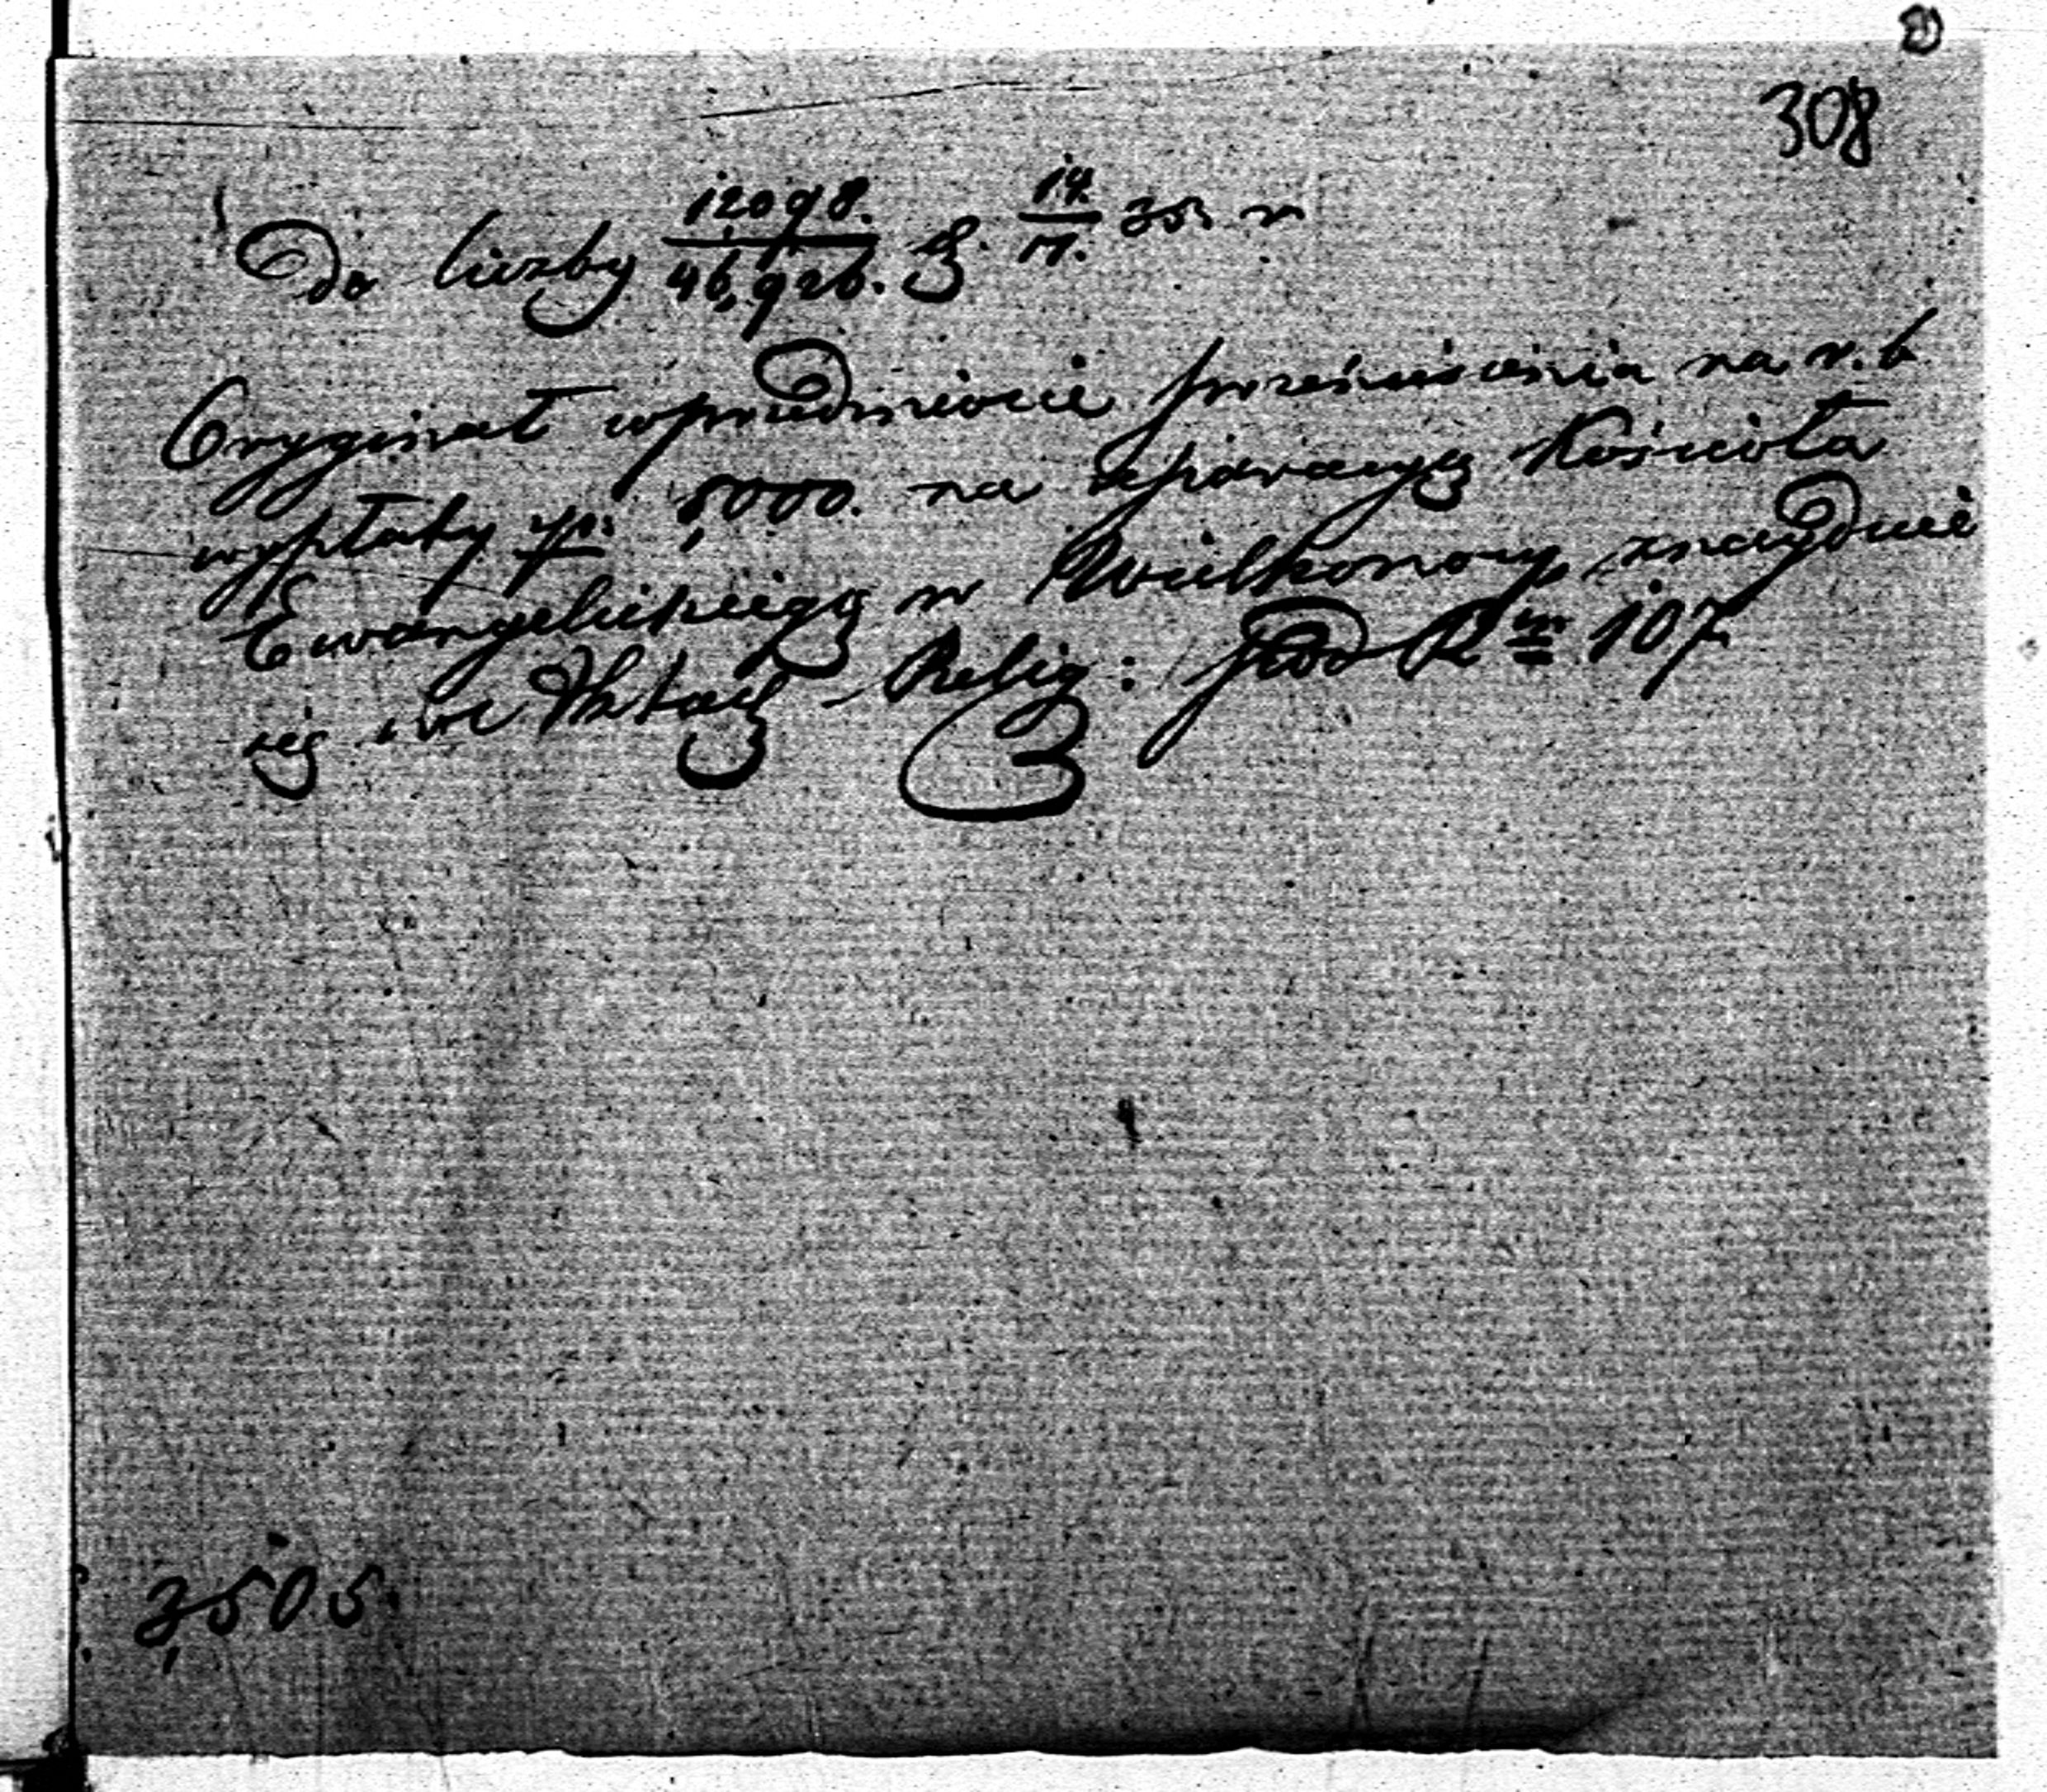 308
Do liczby 12098./46,926. z 14./11. 35 r
Oryginał w przedmiocie przeniesienia na r. b
wypłaty zp: 5000. na reparacyą Kościoła
Ewangelickiego w Wielkonocy, znayduie
się we Aktach Relig: pod Rem 107
3,505.